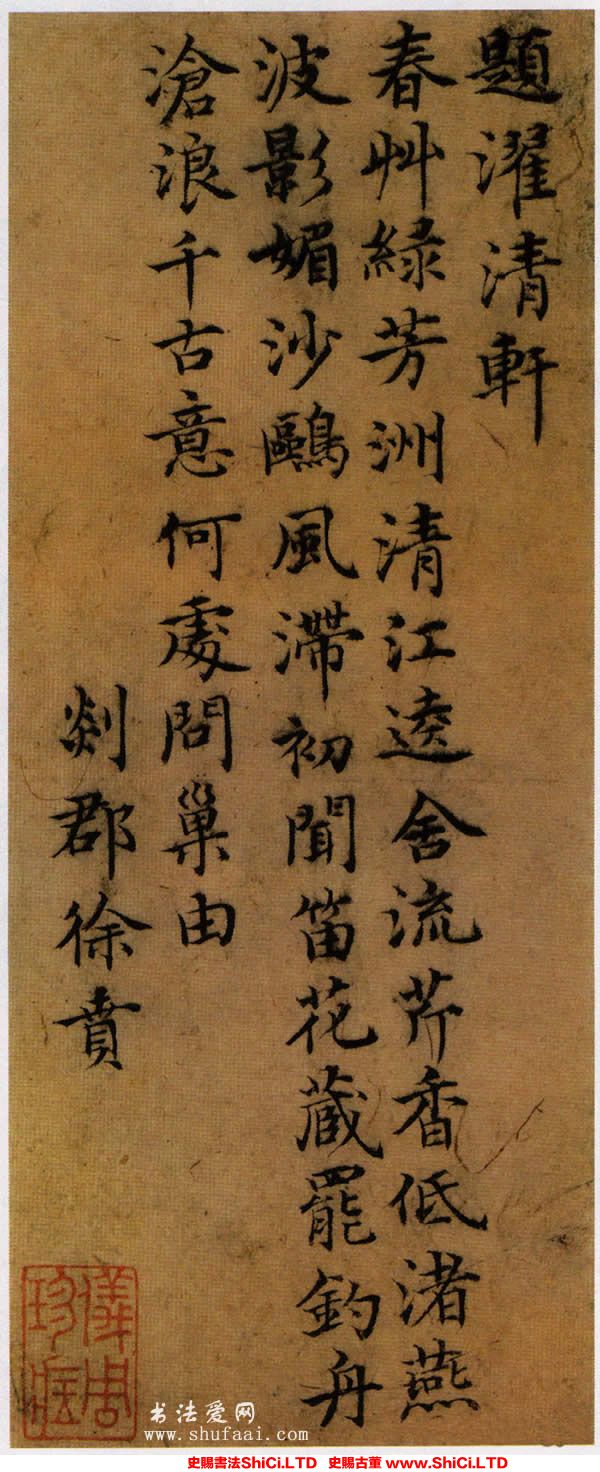 題濯清軒
春艸綠芳洲清江遶舍流芹香低渚燕
波影媚沙鷗風滯初聞笛花藏罷釣舟
滄浪千古意何處問巢由
剡郡徐賁
書法爱网
www.shufaai.com
史賜書法ShiCi.LTD 史賜古董 www.ShiCi.LTD